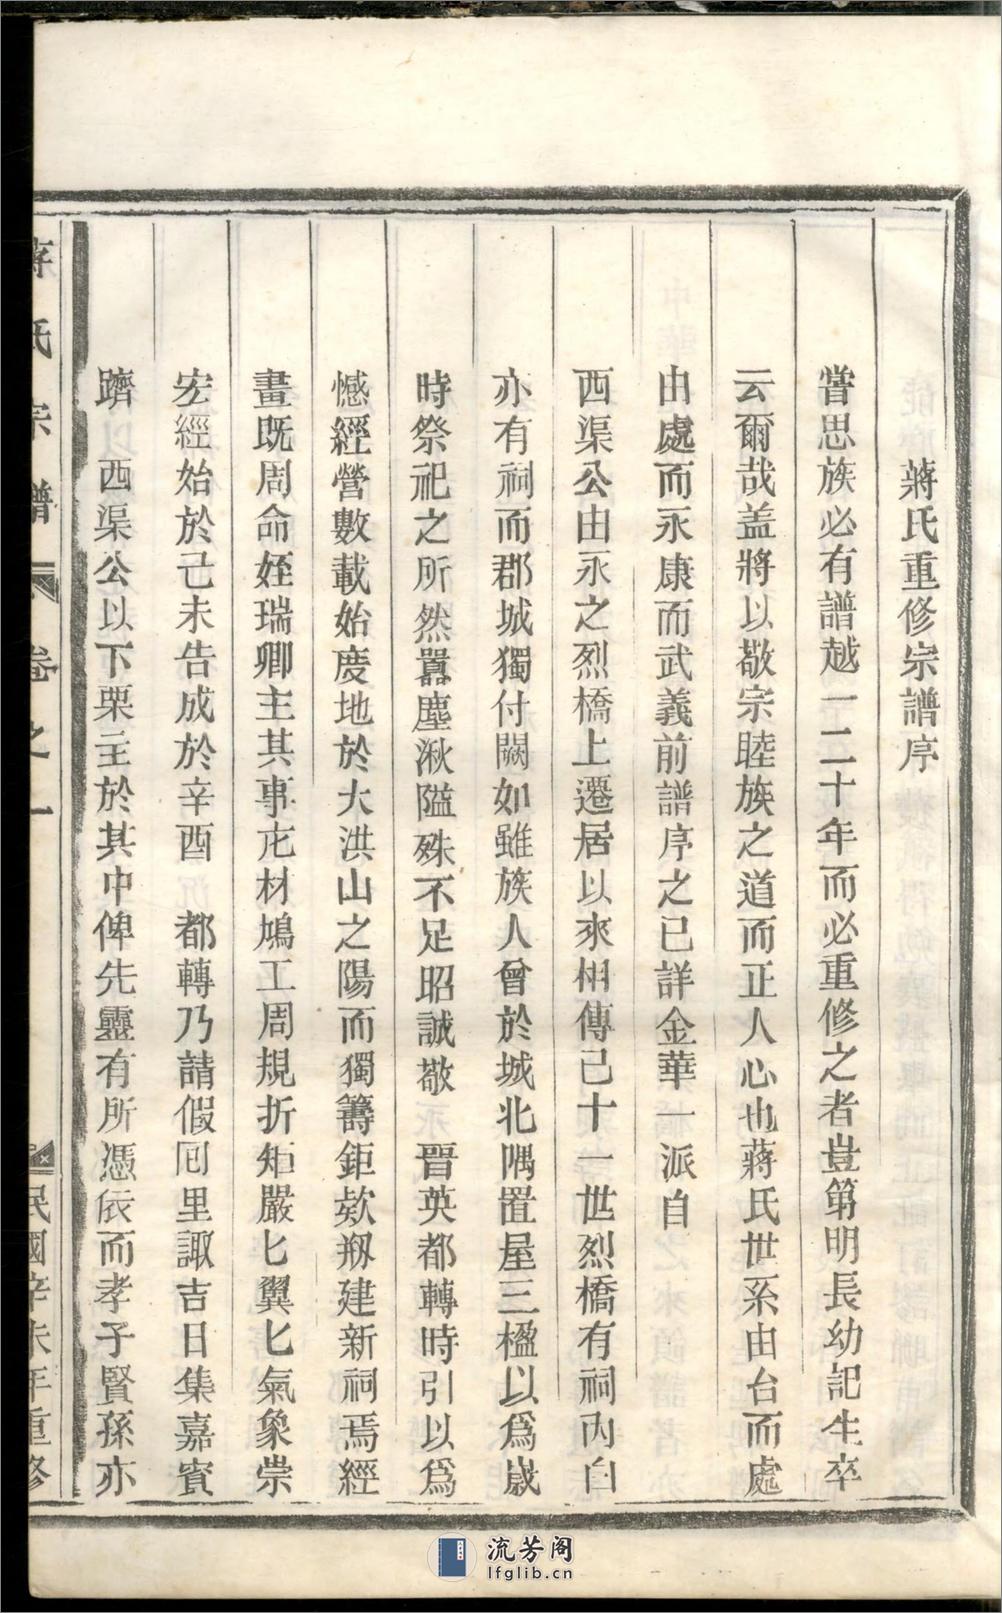 蔣氏重修宗譜序
嘗思族必有譜越一二十年而必重修之者豈第明長幼記生卒
云爾哉盖將以敬宗睦族之道而正人心也蔣氏世系由台而處
由處而永康而武義前譜序之已詳金華一派自
西渠公由永之烈橋上遷居以來相傳已十一世烈橋有祠內白
亦有祠而郡城獨付闕如雖族人曾於城北隅置屋三楹以爲歲
時祭祀之所然囂塵湫隘殊不足昭誠敬　晋英都轉時引以爲
憾經營數載始慶地於大洪山之陽而獨籌鉅欵剏建新祠焉經
畫既周命姪瑞卿主其事庀材鳩工周規折矩嚴匕翼匕氣象崇
宏經始於己未告成於辛酉　都轉乃請假囘里諏吉日集嘉賓
躋　西渠公以下栗主於其中俾先靈有所憑依而孝子賢孫亦
蔣氏宗譜　卷之一　民國辛未年重修
流芳阁
lfglib.cn